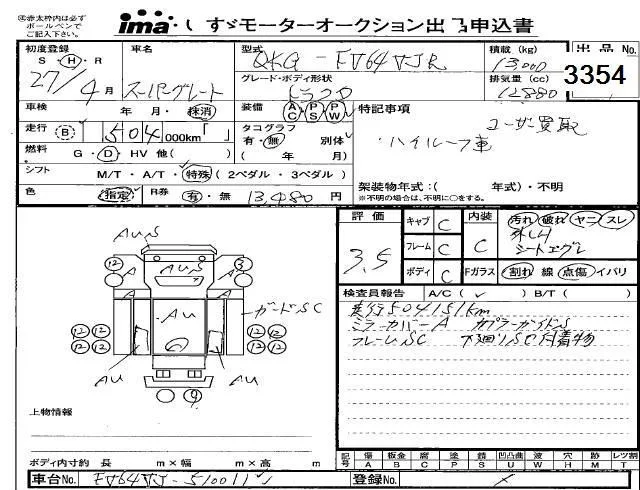 ㊟赤太枠内は必ず
ボールペンで
ご記入下さい。
ima いすゞモーターオークション出品申込書
初度登録 S・H・R 27/4月
車名 スーパーグレート
型式 QKG-FV64VJR
積載(kg) 13000
出品No. 3354
グレード・ボディ形状 トラクタ
排気量(cc) 12880
車検 年 月・抹消
装備 AC PS PW
特記事項
ユーザー買取
ハイルーフ車
走行 B 504,000km「 」
タコグラフ 有・無 別体 ( 年 月)
燃料 G・D・HV 他( )
シフト M/T・A/T・特殊(2ペダル・3ペダル)
架装物年式:( 年式)・不明
※不明の場合は、不明に○をする。
色 指定 R券 有・無 13,480 円
評価 3.5
キャブ C
フレーム C
ボディ C
内装 C
Fガラス
汚れ 破れ ヤニ スレ
シート
割れ 線 点傷 イバリ
検査員報告 A/C( ✓ ) B/T( )
走行504151km
ミラーカバーA カプラーガイドS
フレームSC 下廻りSC付着物
AUS
12 3
AUS
A A
AU
ガードSC
12 12 12 12
12 12 12 12
AU AU
9
上物情報
ボディ内寸約 長 m×幅 m×高 m
記号 傷 A 板金 B 腐 C 塗 P 錆 S 凹凸曲 U 波 W 穴 H 跡 M レツ割 T
車台No. FV64VJ-510011
登録No.